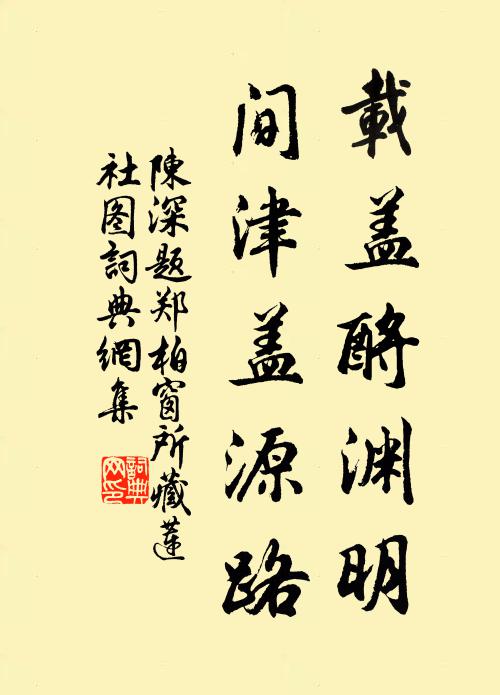 載盖酹渊明
间津盖源路
陳深题郑柏窗所藏蓮
社图詞典網集
詞典网印